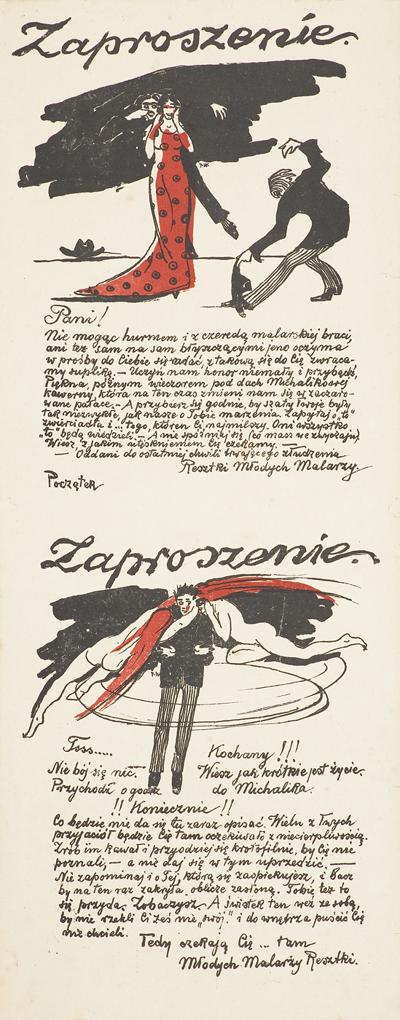 Zaproszenie.
Pani!
Nie mogąc hurmem i z czeredą malarskiej braci,
ani też sam na sam błyszczącymi jeno oczyma
w prośby do Ciebie się udać, z takową się do Cię zwraca-
my supliką. — Uczyń nam honor niemały i przybądź,
Piękna, późnym wieczorem pod dach Michalikowej
kawerny, która na ten czas zmieni nam się w zaczaro-
wane pałace. — A przybierz się godnie, by szaty Twoje były
tak niezwykłe, jak nasze o Tobie marzenia. Zapytaj o „to"
zwierciadła i... tego, któren Ci najmilszy. Oni wszystko
„to" będą wiedzieli. — A nie spóźniaj się (co masz we zwyczaju)
Wiesz z jakim utęsknieniem Cię czekamy. —
— Oddani do ostatniej chwili trwającego złudzenia
Resztki Młodych Malarzy.
Początek
Zaproszenie.
Tsss..... Kochany!!!
Nie bój się nic. Wiesz jak krótkie jest życie.
Przychodź o godz. do Michalika.
!! Koniecznie!!
Co będzie nie da się tu zaraz opisać. Wielu z Twych
przyjaciół będzie Cię tam oczekiwało z niecierpliwością.
Zrób im kawał i przyodziej się krotofilnie, by Cię nie
poznali, — a nie daj się w tym uprzedzić. —
Nie zapominaj i o Tej, którą się zaopiekujesz, i bacz
by na ten raz zakryła oblicze zasłoną. Tobie też to
się przyda. Zobaczysz. A świstek ten weź ze sobą,
by nie rzekli Ci żeś nie „swój" i do wnętrza puścić Cię
nie chcieli.
Tedy czekają Cię... tam
Młodych Malarzy Resztki.